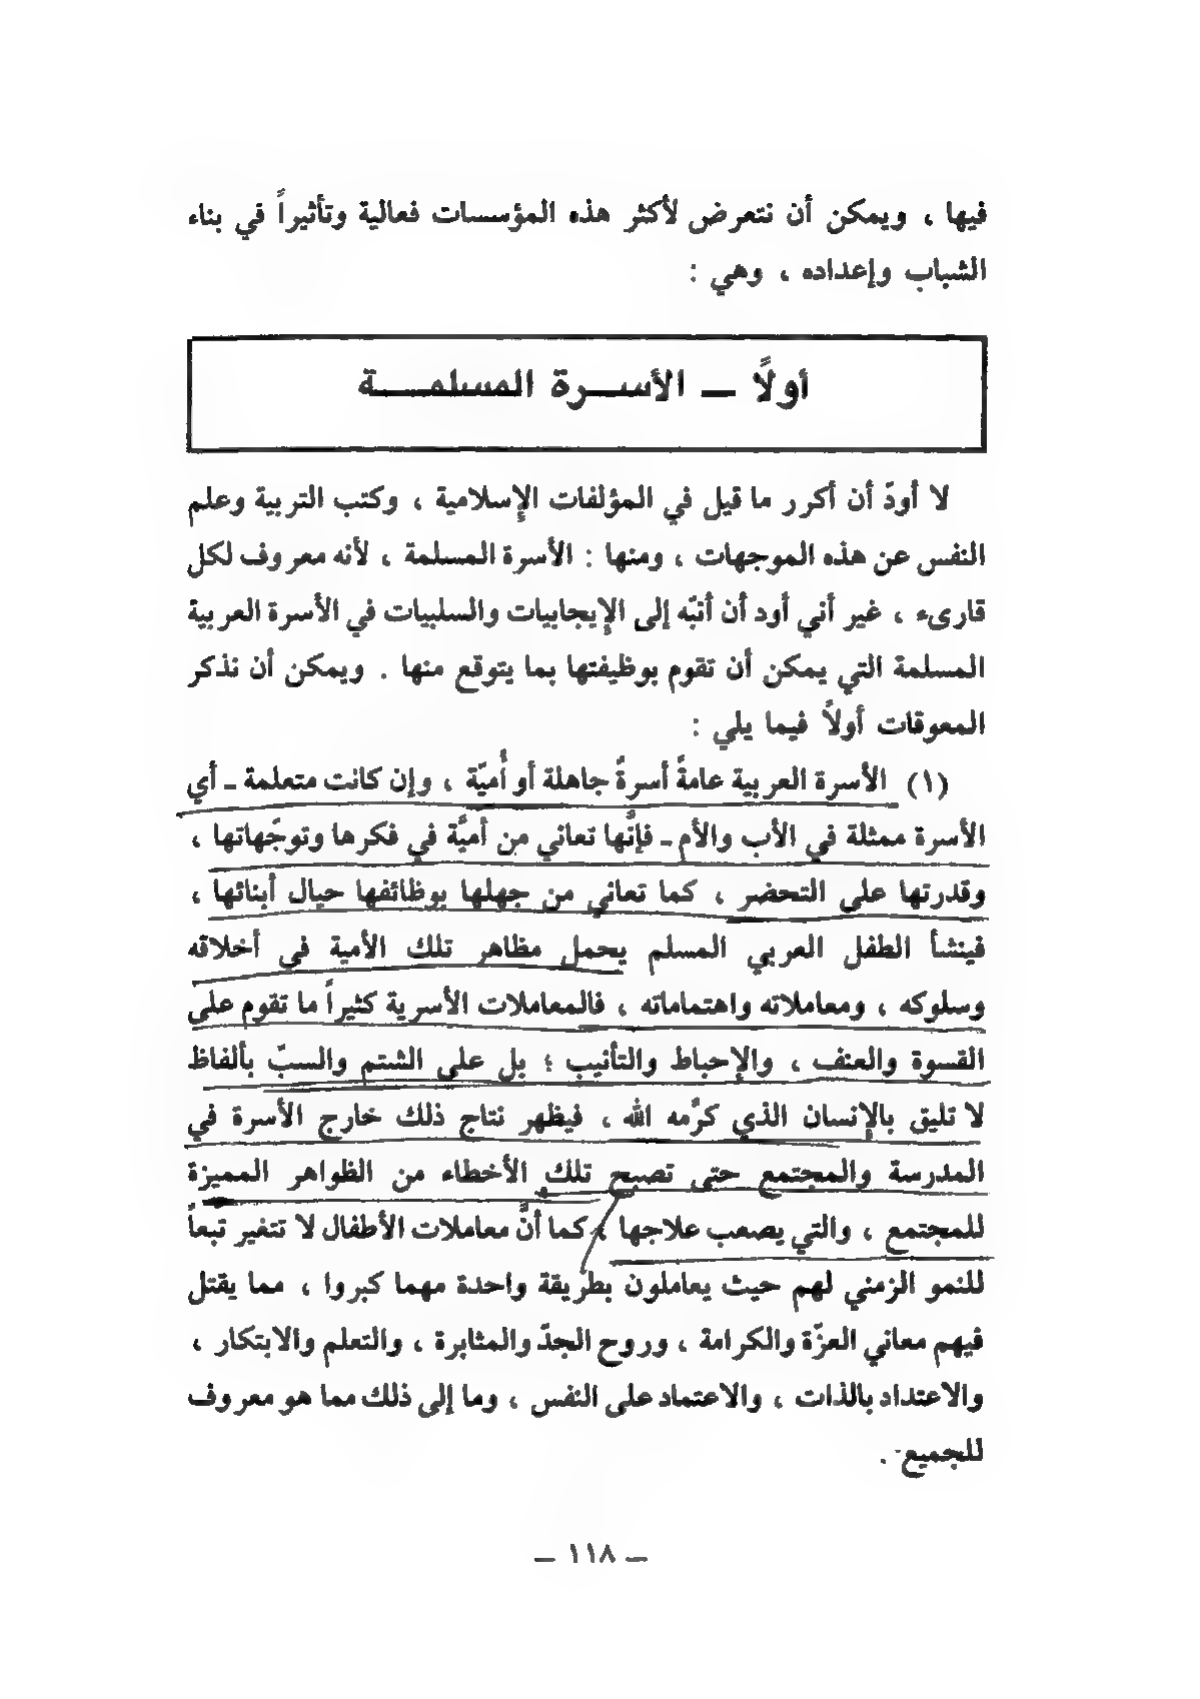 فيها ، ويمكن أن نتعرض لأكثر هذه المؤسسات فعالية وتأثيراً في بناء
الشباب وإعداده ، وهي :
أولاً ــ الأســرة المسلمــة
لا أودّ أن أكرر ما قيل في المؤلفات الإسلامية ، وكتب التربية وعلم
النفس عن هذه الموجهات ، ومنها : الأسرة المسلمة ، لأنه معروف لكل
قارىء ، غير أني أود أن أنبّه إلى الإيجابيات والسلبيات في الأسرة العربية
المسلمة التي يمكن أن تقوم بوظيفتها بما يتوقع منها . ويمكن أن نذكر
المعوقات أولاً فيما يلي :
(١) الأسرة العربية عامةً أسرةً جاهلة أو أُميّة ، وإن كانت متعلمة ـ أي
الأسرة ممثلة في الأب والأم ـ فإنَّها تعاني من أميَّة في فكرها وتوجّهاتها ،
وقدرتها على التحضر ، كما تعاني من جهلها بوظائفها حيال أبنائها ،
فينشأ الطفل العربي المسلم يحمل مظاهر تلك الأمية في أخلاقه
وسلوكه ، ومعاملاته واهتماماته ، فالمعاملات الأسرية كثيراً ما تقوم على
القسوة والعنف ، والإحباط والتأنيب ؛ بل على الشتم والسبّ بألفاظ
لا تليق بالإنسان الذي كرَّمه الله ، فيظهر نتاج ذلك خارج الأسرة في
المدرسة والمجتمع حتى تصبح تلك الأخطاء من الظواهر المميزة
للمجتمع ، والتي يصعب علاجها ، كما أنَّ معاملات الأطفال لا تتغير تبعاً
للنمو الزمني لهم حيث يعاملون بطريقة واحدة مهما كبروا ، مما يقتل
فيهم معاني العزّة والكرامة ، وروح الجدّ والمثابرة ، والتعلم والابتكار ،
والاعتداد بالذات ، والاعتماد على النفس ، وما إلى ذلك مما هو معروف
للجميع .
ــ ١١٨ ــ